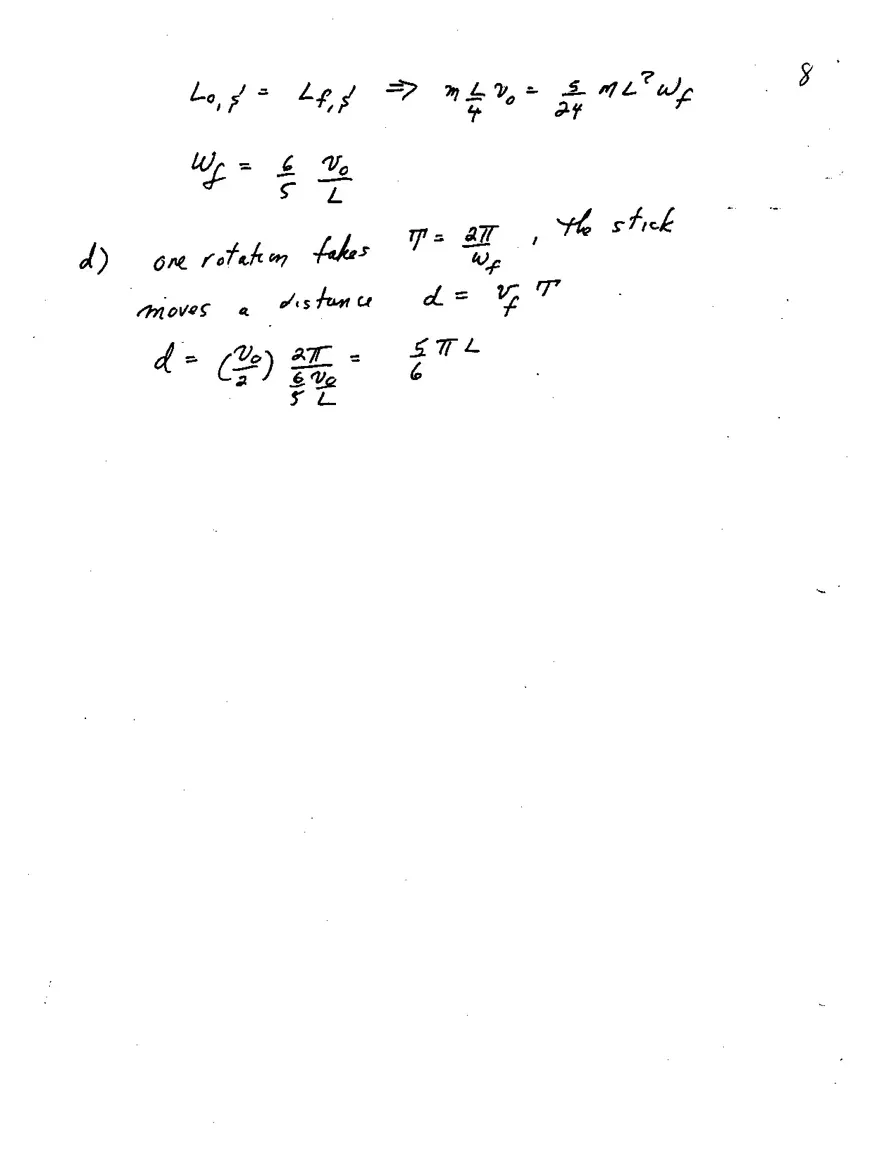 8
L₀,⸹ = L_f,⸹ ⇒ m L/4 v₀ = 5/24 mL² ω_f
ω_f = 6/5 v₀/L
d) one rotation takes T = 2π/ω_f , the stick
moves a distance d = v_f T
d = (v₀/2) 2π/(6/5 v₀/L) = 5/6 π L